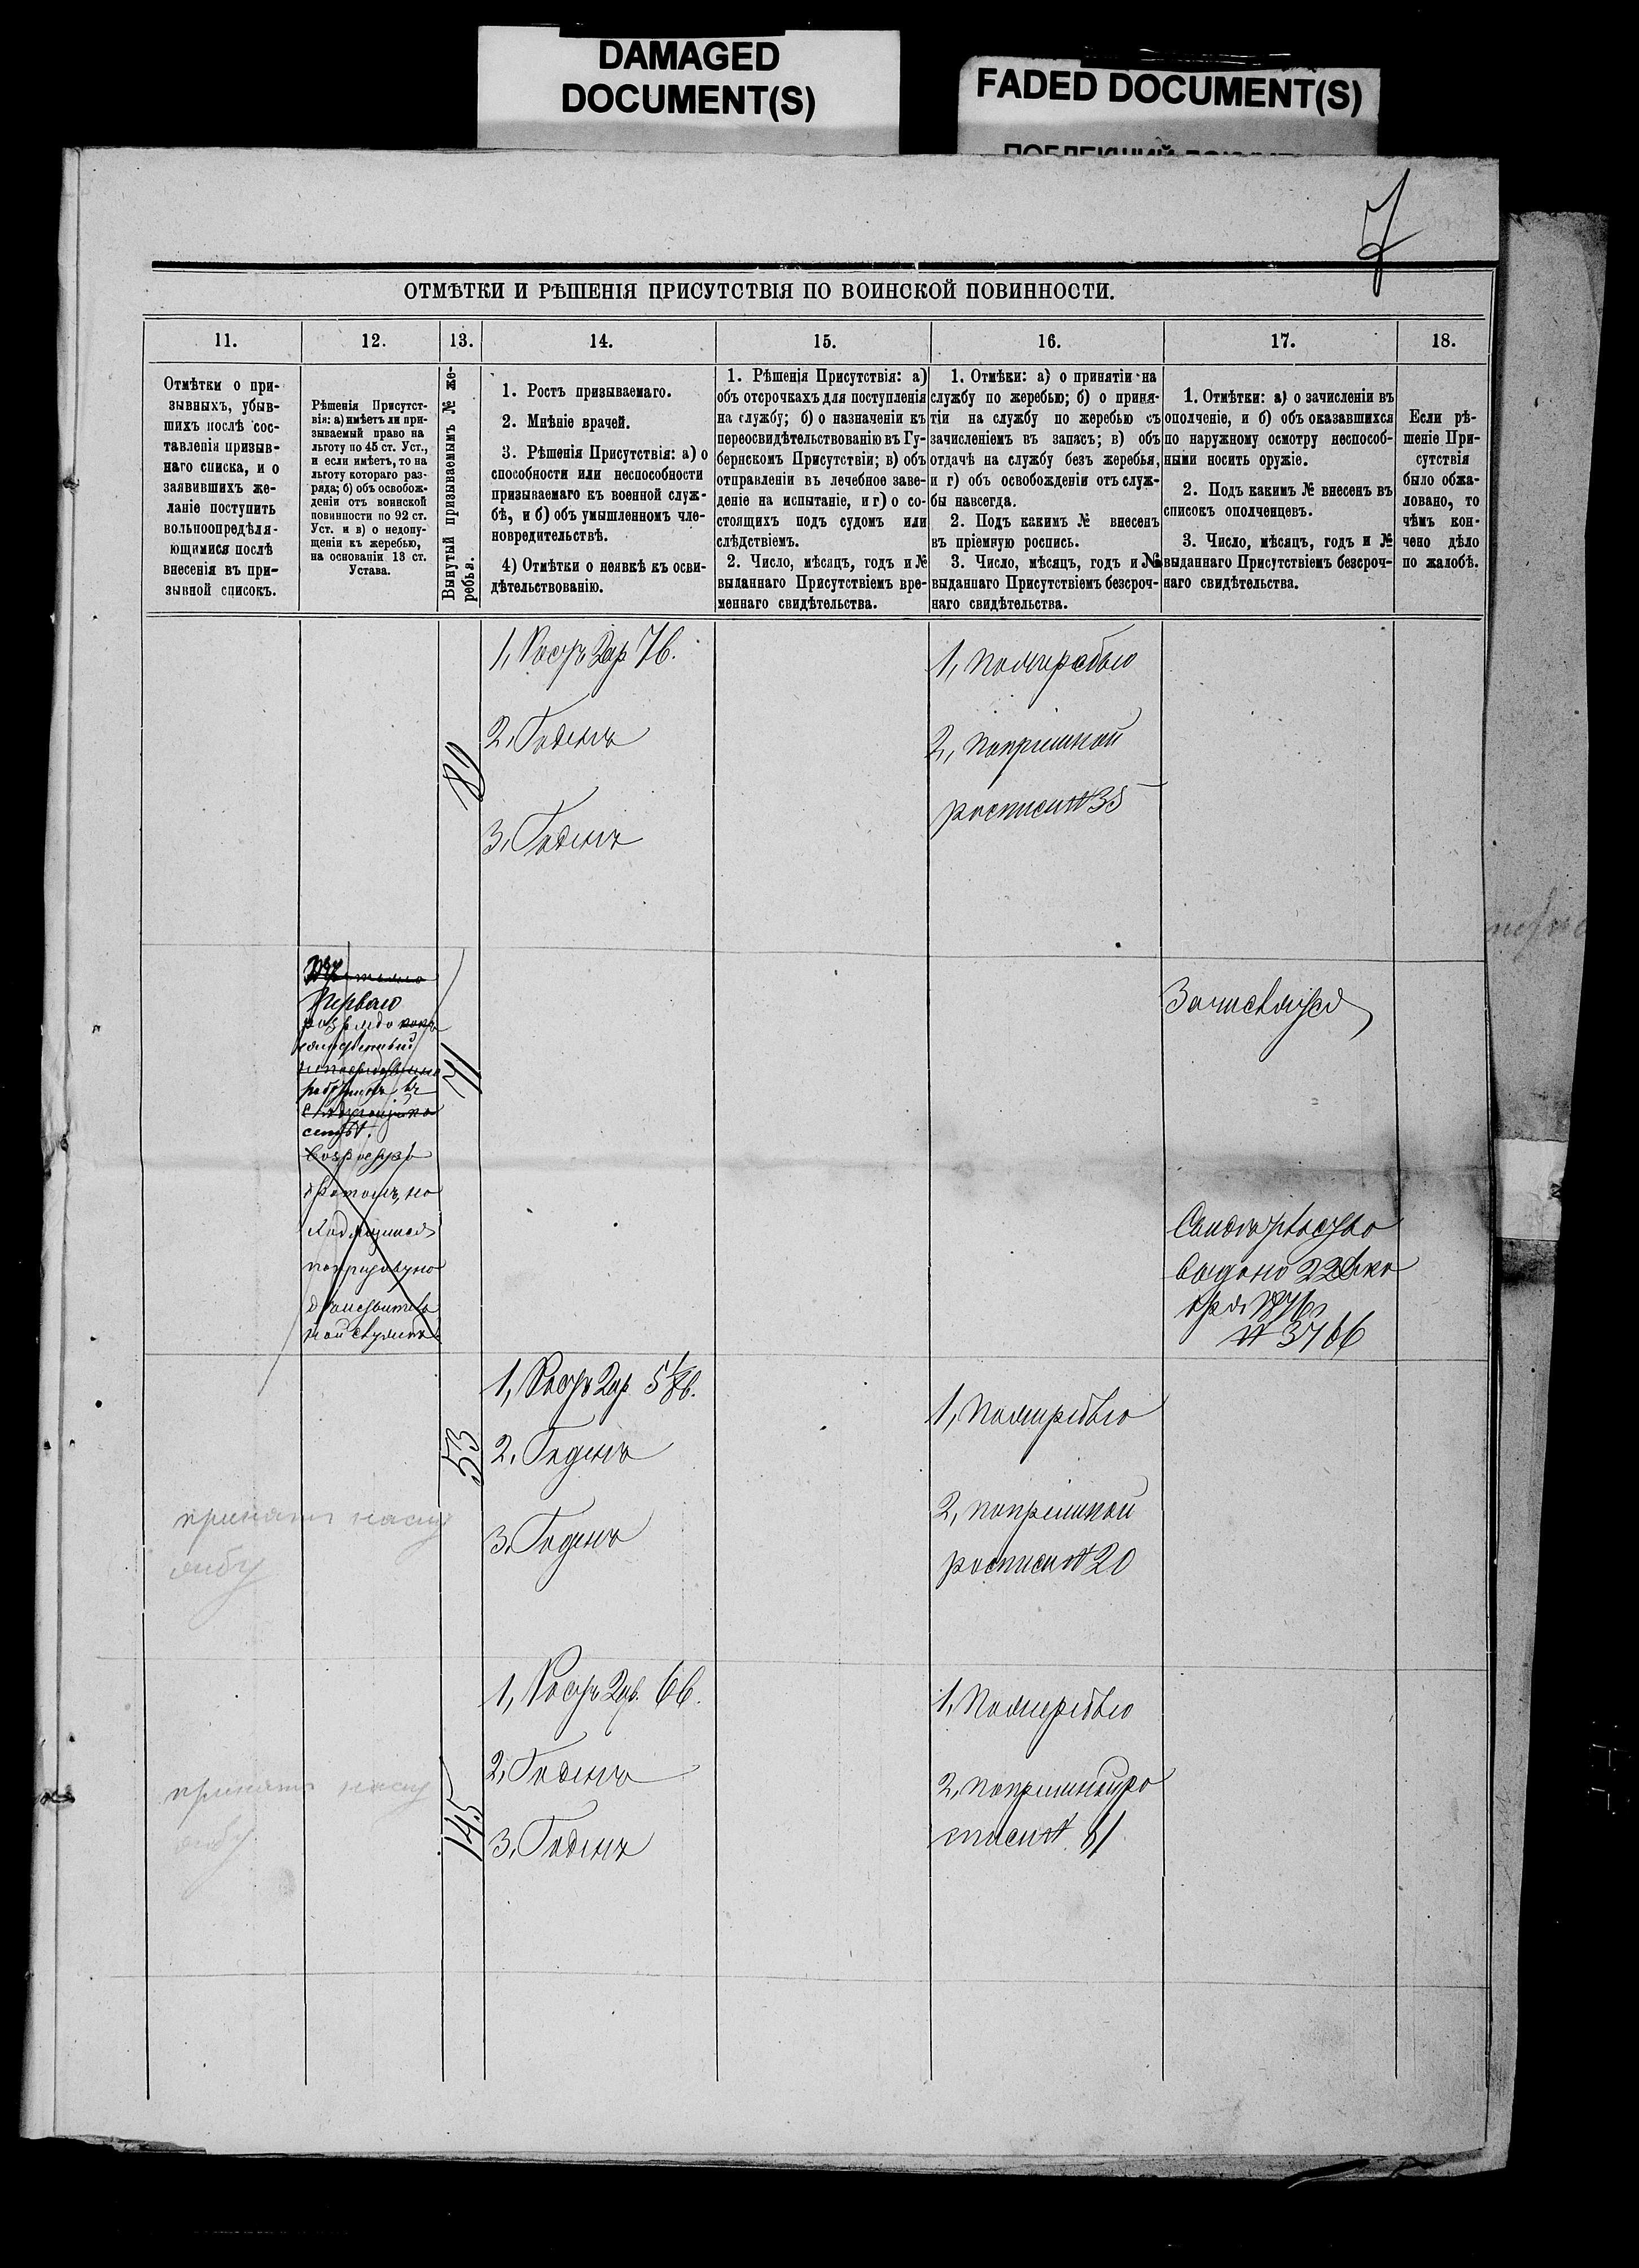 DAMAGED
DOCUMENT(S)
FADED DOCUMENT(S)
7
ОТМѢТКИ И РѢШЕНІЯ ПРИСУТСТВІЯ ПО ВОИНСКОЙ ПОВИННОСТИ.
11.
12.
13.
14.
15.
16.
17.
18.
Отмѣтки о при-
зывныхъ, убыв-
шихъ послѣ сос-
тавленія призыв-
наго списка, и о
заявившихъ же-
ланіе поступить
вольноопредѣля-
ющимися послѣ
внесенія въ при-
зывной списокъ.
Рѣшенія Присутст-
вія: а) имѣетъ ли при-
зываемый право на
льготу по 45 ст. Уст.,
и если имѣетъ, то на
льготу котораго раз-
ряда; б) объ освобож-
деніи отъ воинской
повинности по 92 ст.
Уст. и в) о недопу-
щеніи къ жеребью,
на основаніи 13 ст.
Устава.
Вынутый призываемымъ № же-
ребья.
1. Ростъ призываемаго.
2. Мнѣніе врачей.
3. Рѣшенія Присутствія: а) о
способности или неспособности
призываемаго къ военной служ-
бѣ, и б) объ умышленномъ чле-
новредительствѣ.
4) Отмѣтки о неявкѣ къ осви-
дѣтельствованію.
1. Рѣшенія Присутствія: а)
объ отсрочкахъ для поступленія
на службу; б) о назначеніи къ
переосвидѣтельствованію въ Гу-
бернскомъ Присутствіи; в) объ
отправленіи въ лечебное заве-
деніе на испытаніе, и г) о со-
стоящихъ подъ судомъ или
слѣдствіемъ.
2. Число, мѣсяцъ, годъ и №
выданнаго Присутствіемъ вре-
меннаго свидѣтельства.
1. Отмѣки: а) о принятіи на
службу по жеребью; б) о приня-
тіи на службу по жеребью съ
зачисленіемъ въ запасъ; в) объ
отдачѣ на службу безъ жеребья,
и г) объ освобожденіи отъ служ-
бы навсегда.
2. Подъ какимъ № внесенъ
въ пріемную роспись.
3. Число, мѣсяцъ, годъ и №
выданнаго Присутствіемъ безсроч-
наго свидѣтельства.
1. Отмѣтки: а) о зачисленіи въ
ополченіе, и б) объ оказавшихся
по наружному осмотру неспособ-
ными носить оружіе.
2. Подъ какимъ № внесенъ въ
списокъ ополченцевъ.
3. Число, мѣсяцъ, годъ и №
выданнаго Присутствіемъ безсроч-
наго свидѣтельства.
Если рѣ-
шеніе При-
сутствія
было обжа-
ловано, то
чѣмъ кон-
чено дѣло
по жалобѣ.
1, Ростъ 2 ар 7 в.
2, Годенъ
3, Годенъ
1, По жеребью
2, по пріемной
росписи № 35
Перваго
разряда
братомъ, на
дѣйствитель
ной службѣ
71
Свидѣтельство
Выдано 22
№ 3766
53
1, Ростъ 2 ар 5 1/8 в.
2, Годенъ
3, Годенъ
1, По жеребью
2, по пріемной
росписи № 20
принятъ на слу
жбу
145
1, Ростъ 2 ар. 6 в.
2, Годенъ
3, Годенъ
1, По жеребью
2, по пріемной ро
списи №
принятъ на слу
жбу